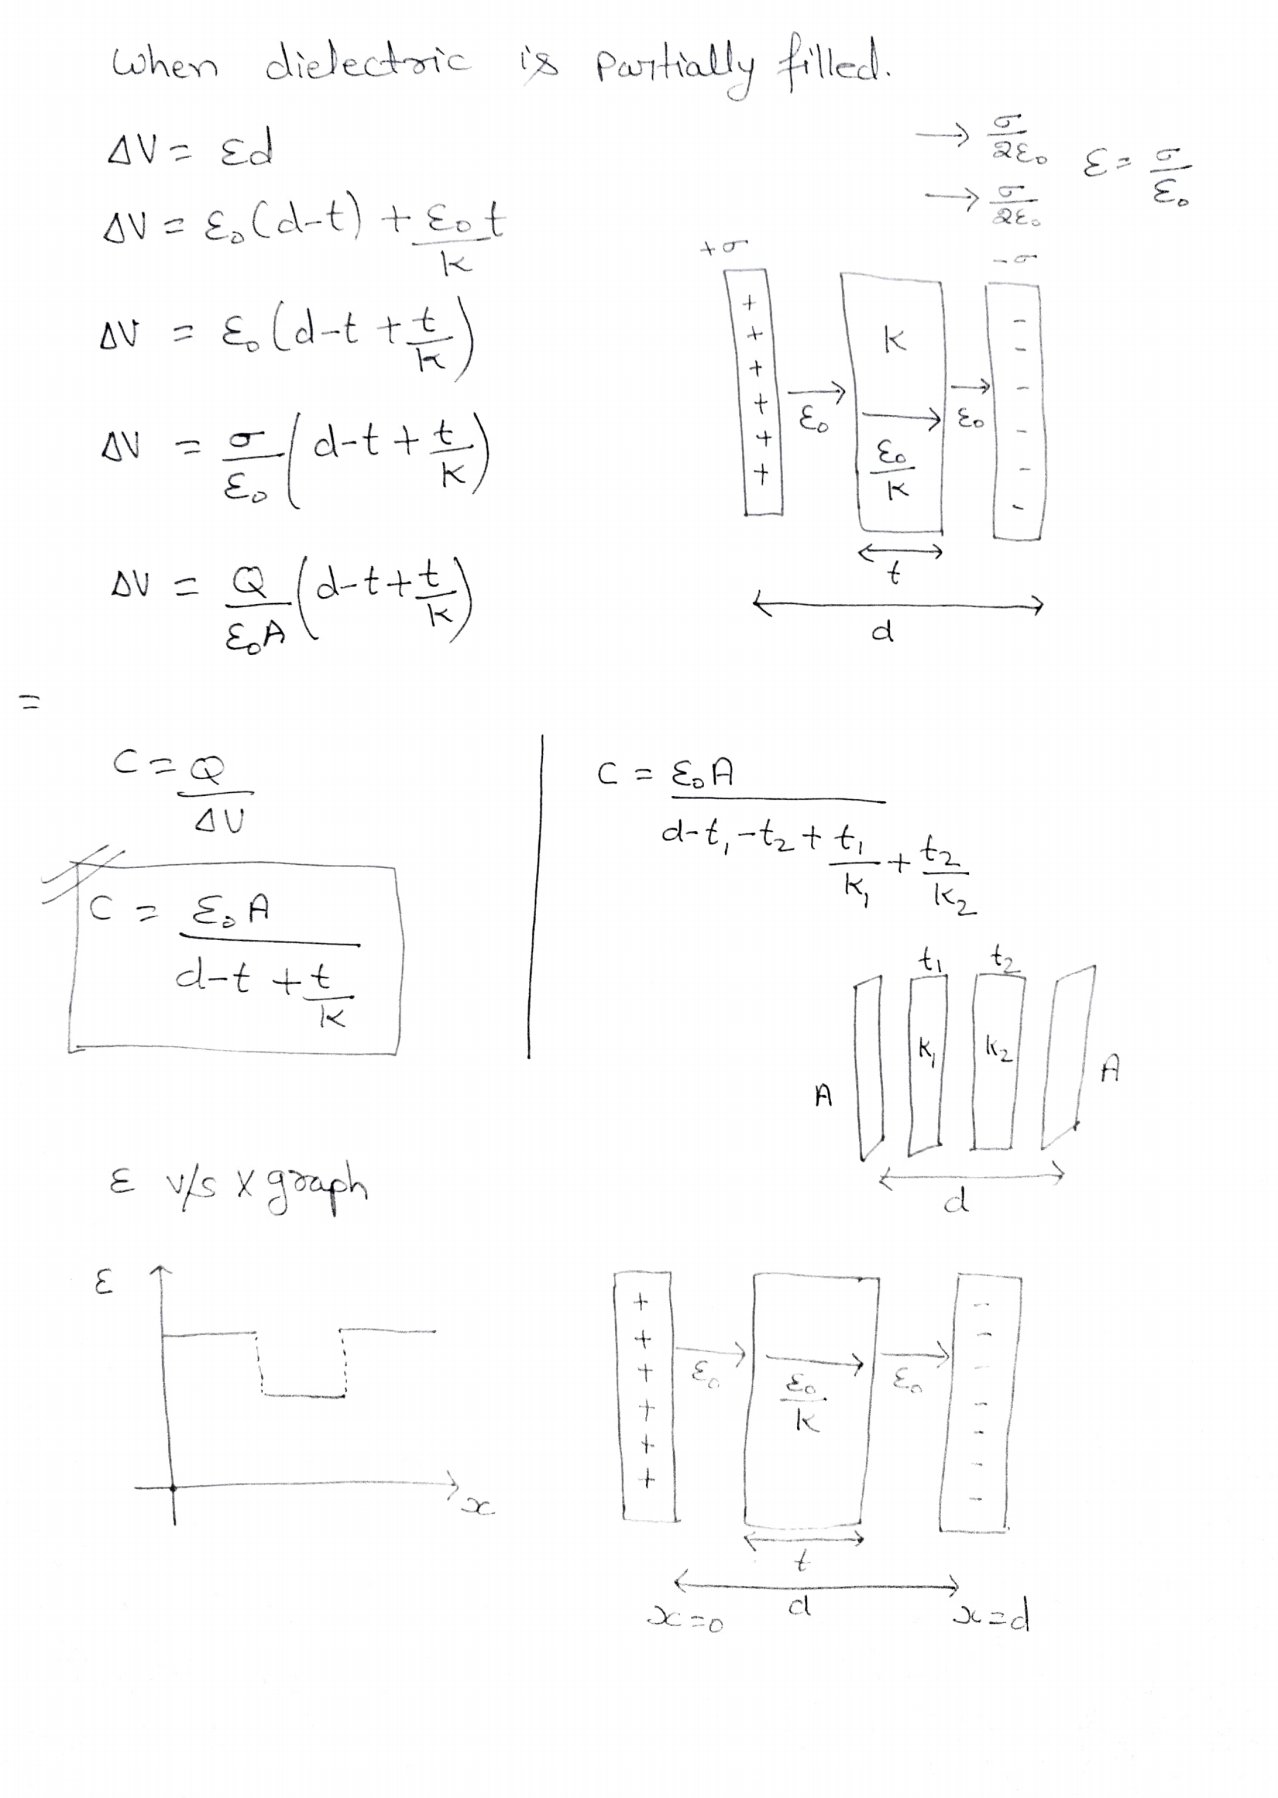 When dielectric is partially filled.
ΔV = Ed
ΔV = E₀(d-t) + E₀t/K
ΔV = E₀(d-t + t/K)
ΔV = σ/ε₀ (d-t + t/K)
ΔV = Q/ε₀A (d-t + t/K)
=
→ σ/2ε₀
→ σ/2ε₀
E = σ/ε₀
+σ
-σ
+ + + + + +
K
E₀
E₀/K
E₀
- - - - - -
t
d
C = Q/ΔV
C = ε₀A/(d-t + t/K)
C = ε₀A/(d-t₁-t₂ + t₁/K₁ + t₂/K₂)
t₁ t₂
K₁ K₂
A A
d
E v/s x graph
E
x
+ + + + + +
E₀
E₀/K
E₀
- - - - - - -
t
d
x=0 x=d